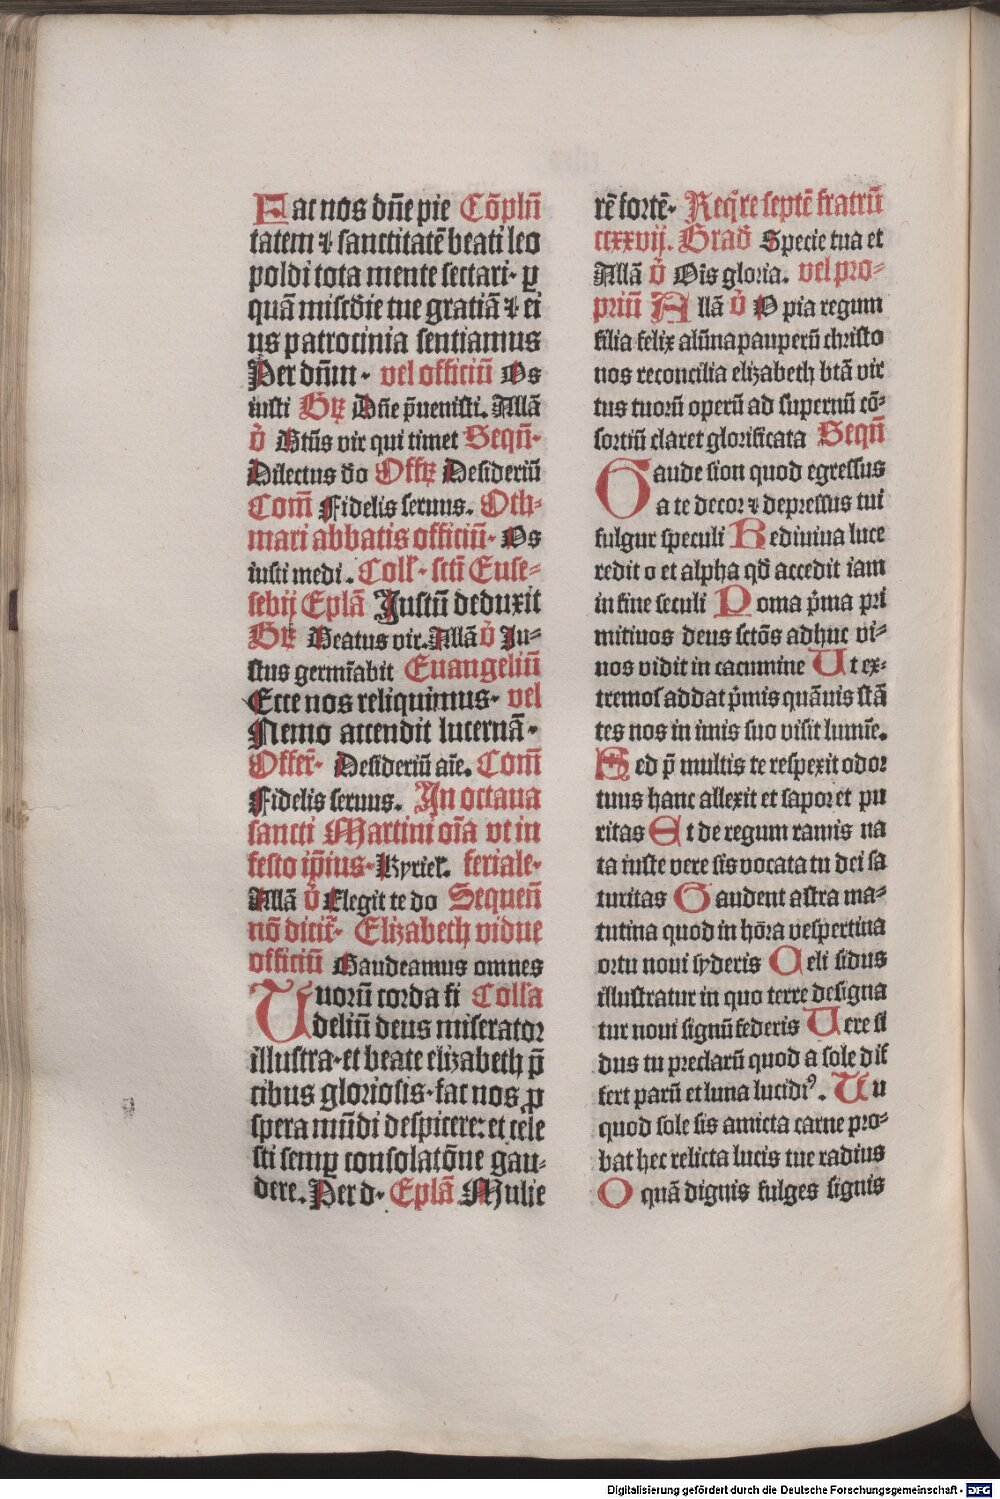 Fac nos dn̄e pie Cōpln̄
tatem ⁊ sanctitatē beati leo
poldi tota mente sectari · ꝑ
quā misc̄die tue gratiā ⁊ ei
us patrocinia sentiamus
Per dn̄m · vel officiū Os
iusti Gr̄ Dn̄e p̄uenisti. Allā
v̊ Btūs vir qui timet Seqn̄·
Dilectus do Offr̄ Desideriū
Com̄ Fidelis seruus. Oth⸗
mari abbatis officiū · Os
iusti medi . Coll̄ · scti Euse⸗
sebij Eplā Justū deduxit
Gr̄ Beatus vir. Allā v̊ Ju⸗
stus germīabit Euangeliū
Ecce nos reliquimus · vel
Nemo accendit lucernā ·
Offer̄· Desideriū aīe. Com̄
Fidelis seruus. In octaua
sancti Martini oīa vt in
festo ip̄ius · Kyriel̄. feriale·
Allā v̊ Elegit te do Sequen̄
nō dicit̄· Elizabeth vidue
officiū Gaudeamus omnes
Tuorū corda fi Collā
deliū deus miserator
illustra · et beate elizabeth p̄
cibus gloriosis · fac nos ꝓ
spera mūdi despicere: et cele
sti semꝑ consolatōne gau⸗
dere. Per d· Eplā Mulie
rē fortē· Req̄re septē fratrū
ccxxvij. Grad̄ Specie tua et
Allā v̊ Oīs gloria. vel pro⸗
priū Allā v̊ O pia regum
filia felix alūna pauperū christo
nos reconcilia elizabeth btā vir
tus tuorū operū ad supernū cō⸗
sortiū claret glorificata Seqn̄
Gaude sion quod egressus
a te decor ⁊ depressus tui
fulgur speculi Rediuiua luce
redit o et alpha qd̄ accedit iam
in fine seculi Roma p̄ma pri
mitiuos deus sctōs adhuc vi⸗
uos vidit in cacumine Ut ex⸗
tremos addat p̄mis quāuis stā
tes nos in imis suo visit lumīe.
Sed p̄ multis te respexit odor
tuus hanc allexit et sapor et pu
ritas Et de regum ramis na
ta iuste vere sis vocata tu dei sa
turitas Gaudent astra ma⸗
tutina quod in hōra vespertina
ortu noui syderis Celi sidus
illustratur in quo terre designa
tur noui signū federis Vere si
dus tu preclarū quod a sole dif
fert parū et luna lucidiꝰ. Tu
quod sole sis amicta carne pro⸗
bat hec relicta lucis tue radius
O quā dignis fulges signis